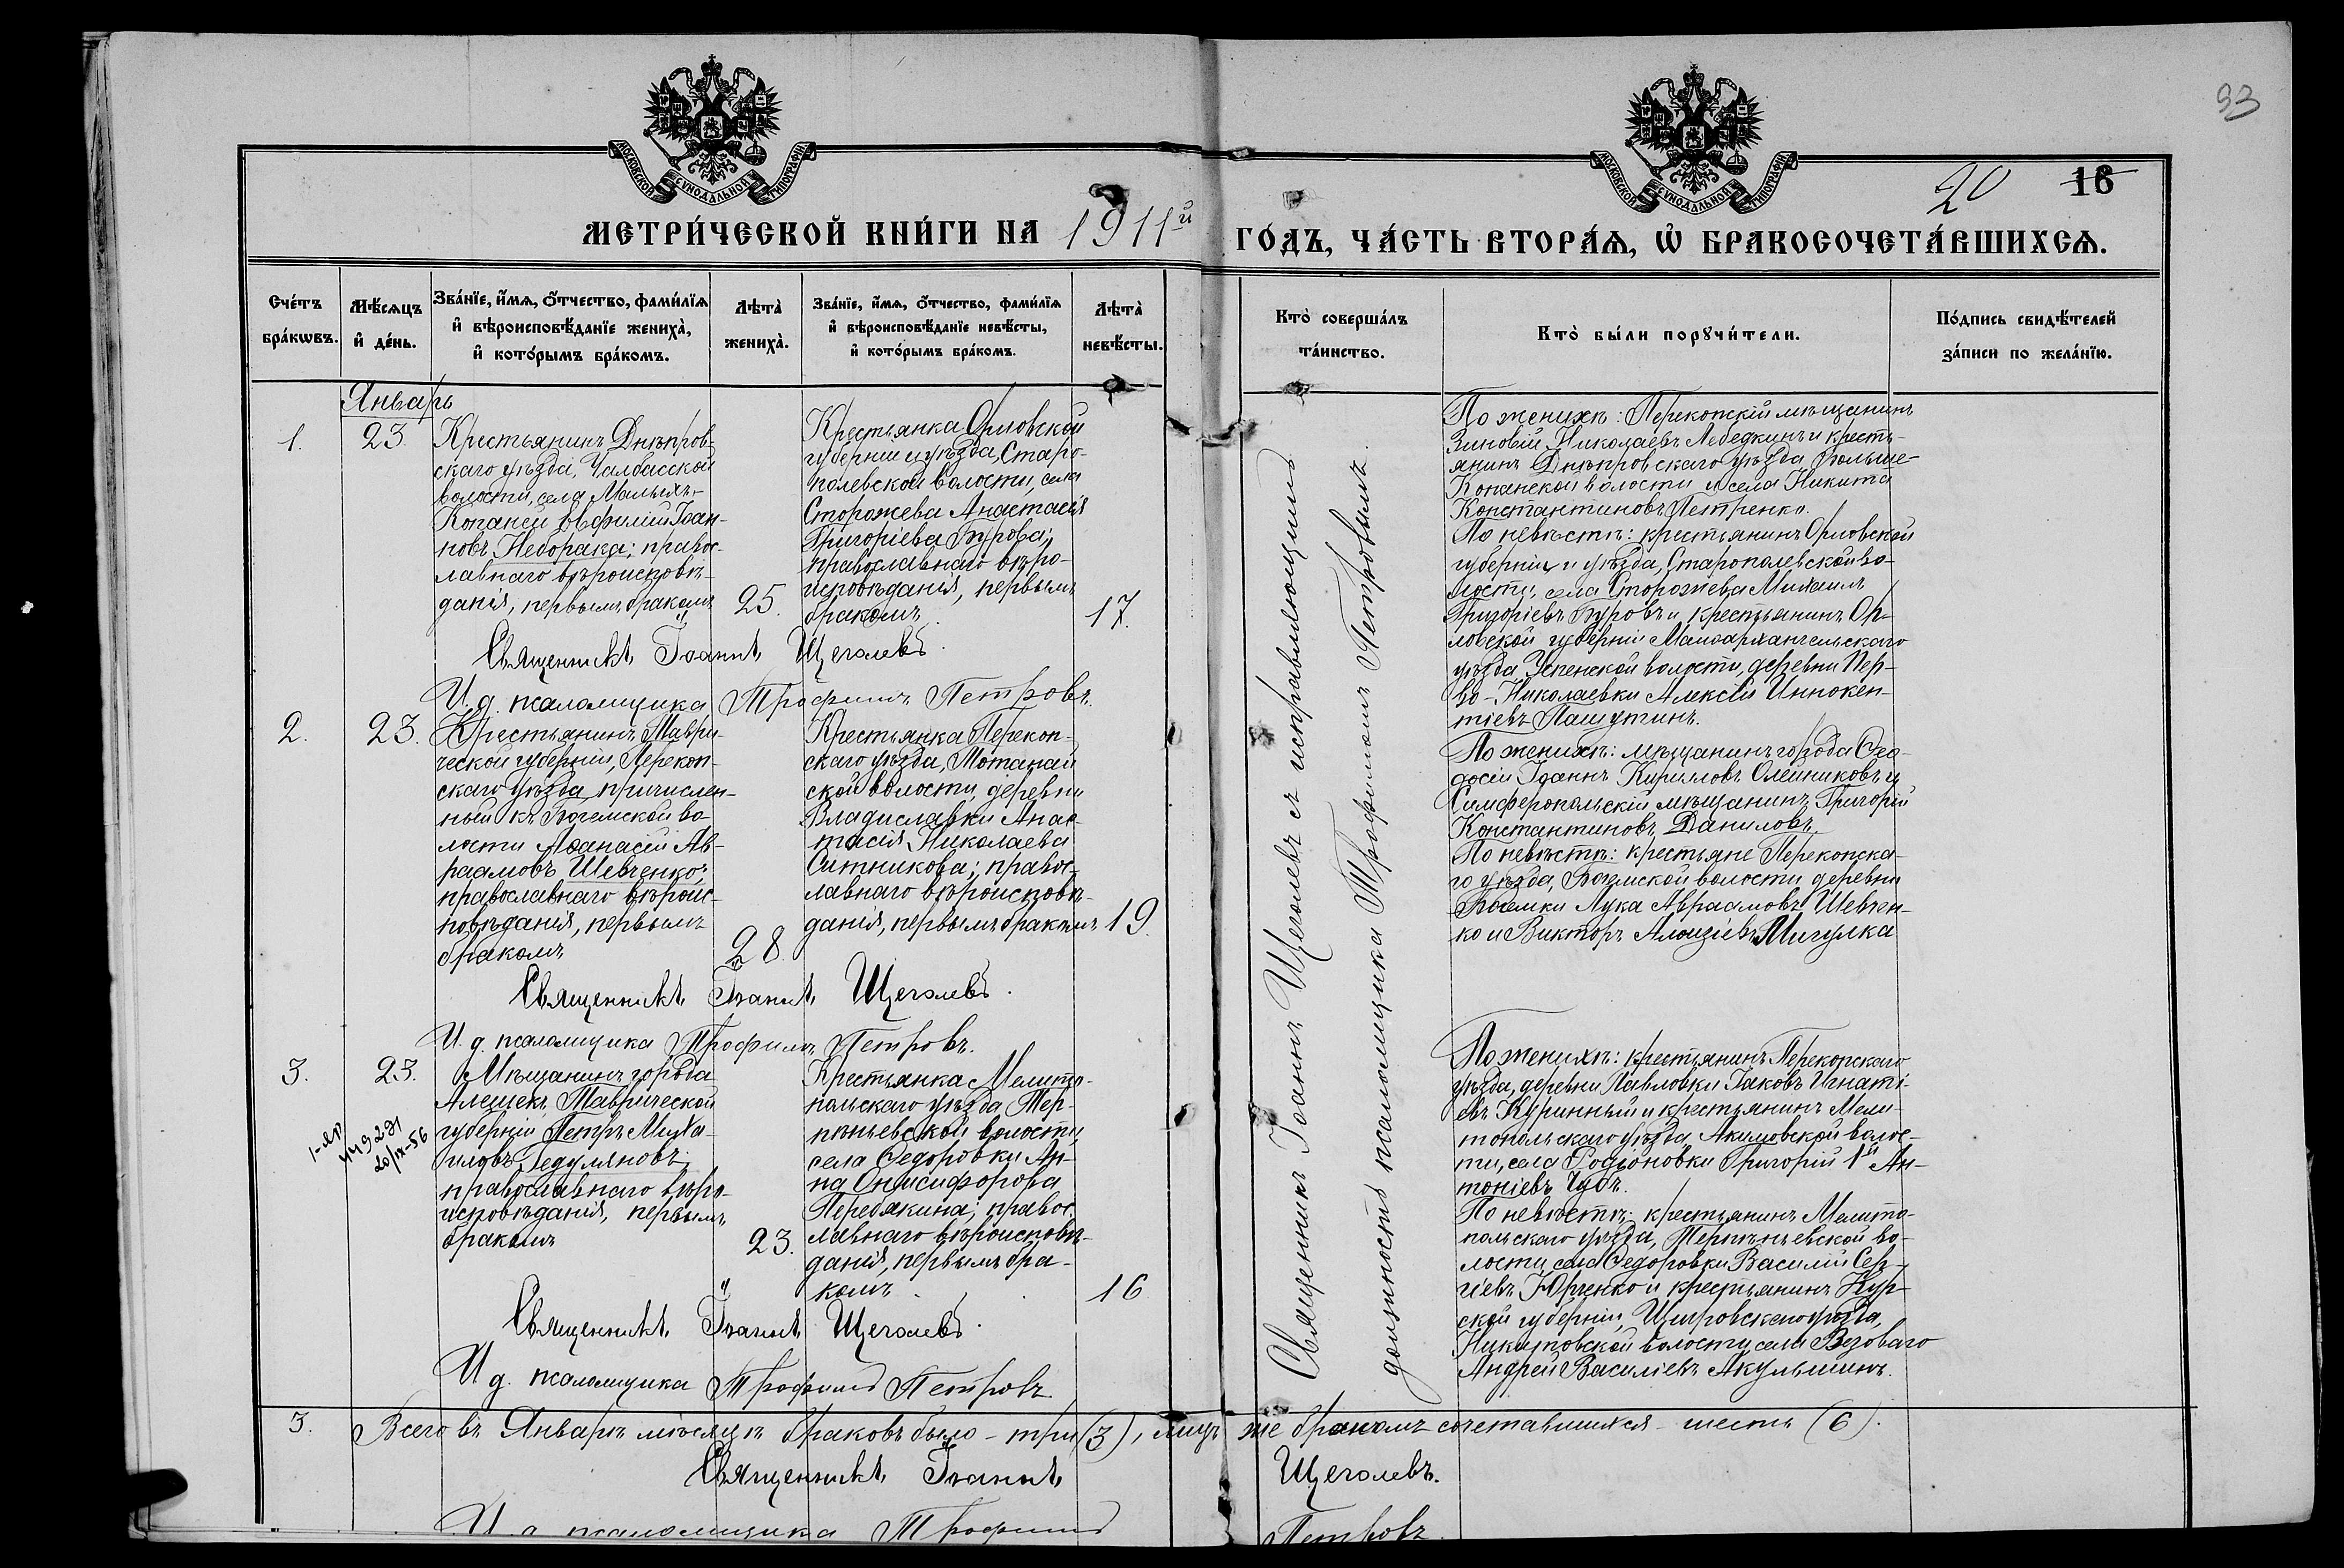 93
МОСКОВСКОЙ СУНОДАЛЬНОЙ ТИПОГРАФІИ
МОСКОВСКОЙ СУНОДАЛЬНОЙ ТИПОГРАФІИ
20 16
МЕТРИ́ЧЕСКОЙ КНИ́ГИ НА 1911й ГО́ДЪ, ЧА́СТЬ ВТОРА́Ѧ, Ѡ҆ БРАКОСОЧЕТА́ВШИХСѦ.
Сче́тъ
бра́кѡвъ.
Мѣ́сѧцъ
и҆ де́нь.
Зва́нїе, и҆́мѧ, ѻ҆́тчество, фами́лїѧ
и҆ вѣроисповѣ́данїе жениха̀,
и҆ кото́рымъ бра́комъ.
Лѣта̀
жениха̀.
Зва́нїе, и҆́мѧ, ѻ҆́тчество, фами́лїѧ
и҆ вѣроисповѣ́данїе невѣ́сты,
и҆ кото́рымъ бра́комъ.
Лѣта̀
невѣ́сты.
Кто̀ соверша́лъ
та́инство.
Кто̀ бы́ли порꙋчи́тели.
По́дпись свидѣ́телей
за́писи по жела́нїю.
Январь
1.
23.
Крестьянинъ Днѣпров-
скаго уѣзда, Чалбасской
волости, села Малыхъ-
Копаней Евфимій Іоан-
новъ Неборака; правос-
лавнаго вѣроисповѣ-
данія, первымъ бракомъ
25.
Крестьянка Орловской
губерніи и уѣзда, Старо-
полевской волости, села
Сторожева Анастасія
Григоріева Бурова;
православнаго вѣро-
исповѣданія, первымъ
бракомъ
17.
Священникъ Іоаннъ Щеголевъ.
И. д. псаломщика Трофимъ Петровъ.
По женихѣ: Перекопскій мѣщанинъ
Зиновій Николаевъ Лебедкинъ и кресть-
янинъ Днѣпровскаго уѣзда Больше-
Копанской волости и села Никита
Константиновъ Петренко.
По невѣстѣ: крестьянинъ Орловской
губерніи и уѣзда, Старополевской во-
лости, села Сторожева Михаилъ
Григоріевъ Буровъ и крестьянинъ Ор-
ловской губерніи Малоархангельскаго
уѣзда, Успенской волости, деревни Пер-
во-Николаевки Алексѣй Иннокен-
тіевъ Пашутинъ.
2.
23.
Крестьянинъ Таври-
ческой губерніи, Перекоп-
скаго уѣзда, причислен-
ный къ Богемской во-
лости Аѳанасій Ав-
раамовъ Шевченко;
православнаго вѣроис-
повѣданія, первымъ
бракомъ
28.
Крестьянка Перекоп-
скаго уѣзда, Тотанай
ской волости, деревни
Владиславки Анас-
тасія Николаева
Ситникова; правос-
лавнаго вѣроисповѣ-
данія, первымъ бракомъ
19.
Священникъ Іоаннъ Щеголевъ.
И. д. псаломщика Трофимъ Петровъ.
По женихѣ: мѣщанинъ города Ѳео-
досіи Іоаннъ Кирилловъ Олейниковъ и
Симферопольскій мѣщанинъ Григорій
Константиновъ Даниловъ.
По невѣстѣ: крестьяне Перекопска-
го уѣзда, Богемской волости деревни
Богемки Лука Авраамовъ Шевчен-
ко и Викторъ Алоизіевъ Мигулка
3.
23.
1-яр
449291
20/IX-56
Мѣщанинъ города
Алешекъ, Таврической
губерніи Петръ Миха-
иловъ Гедуляновъ;
православнаго вѣро-
исповѣданія, первымъ
бракомъ
23.
Крестьянка Мелито-
польскаго уѣзда Тер-
пѣньевской волости,
села Ѳедоровки Ан-
на Онисифорова
Перебякина; правос-
лавнаго вѣроисповѣ-
данія, первымъ бра-
комъ
16
Священникъ Іоаннъ Щеголевъ.
И д. псаломщика Трофимъ Петровъ
По женихѣ: крестьянинъ Перекопскаго
уѣзда, деревни Павловки Іаковъ Игнаті-
евъ Куринный и крестьянинъ Мели-
топольскаго уѣзда, Акимовской волос-
ти, села Родіоновки Григорій 1й Ан-
тоніевъ Чубъ.
По невѣстѣ: крестьянинъ Мелито-
польскаго уѣзда, Терпѣньевской во-
лости, села Ѳедоровки Василій Сер-
гіевъ Юрченко и крестьянинъ Кур-
ской губерніи, Щигровскаго уѣзда,
Никитовской волости, села Везоваго
Андрей Василіевъ Акульшинъ.
Священникъ Іоаннъ Щеголевъ съ исправляющимъ
должность псаломщика Трофимомъ Петровымъ.
3. Всего въ Январѣ мѣсяцѣ браковъ было - три (3), лицъ же бракомъ сочетавшихся - шесть (6).
Священникъ Іоаннъ Щеголевъ.
И д псаломщика Трофимъ Петровъ